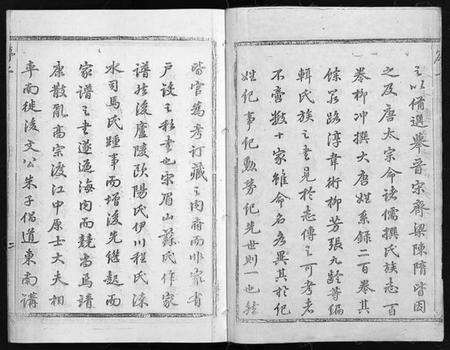 之以備選舉晉宋齊梁陳隋皆因
之及唐太宗命諸儒撰氏族志百
卷柳沖撰大唐姓系錄二百卷其
餘若路淳韋術柳芳張九齡等編
輯氏族之書見於志傳之可考者
不啻數十家雖命名各異其於紀
姓紀事紀勲勞紀先世則一也然
皆官為考訂藏之內府而非家者
戶談之私書也宋眉山蘇氏作家
譜於後廬陵歐陽氏伊川程氏涑
水司馬氏踵事而增後先繼起而
家譜之書遂遍海內而競尚焉靖
康散亂高宗渡江中原士大夫相
率南徙後文公朱子倡道東南講
序二
二